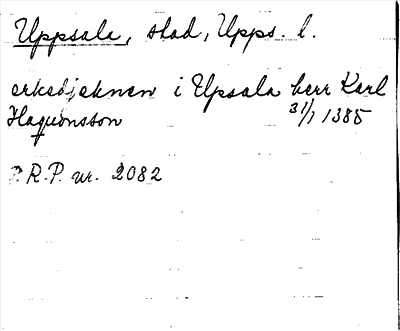 Uppsala, stad, Upps. l.
erkedjeknen i Upsala herr Karl
Haquonsson 31/1 1385
P.R.P. nr. 2082